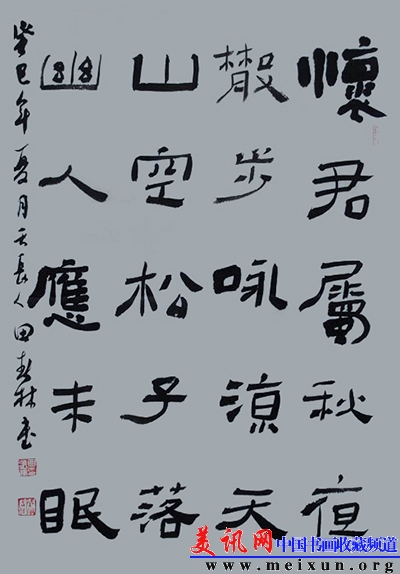 懷君屬秋夜
散步咏涼天
山空松子落
幽人應未眠
癸巳年夏月天長人田春林書
美讯网 中国书画收藏频道
www.meixun.org